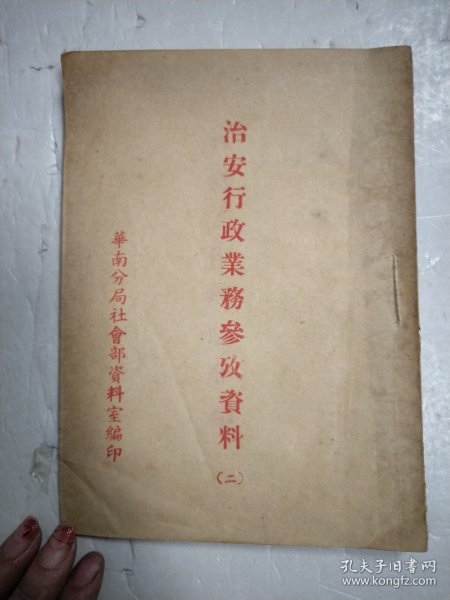 治安行政業務參攷資料
(二)
華南分局社會部資料室編印
孔夫子旧书网
www.kongfz.com